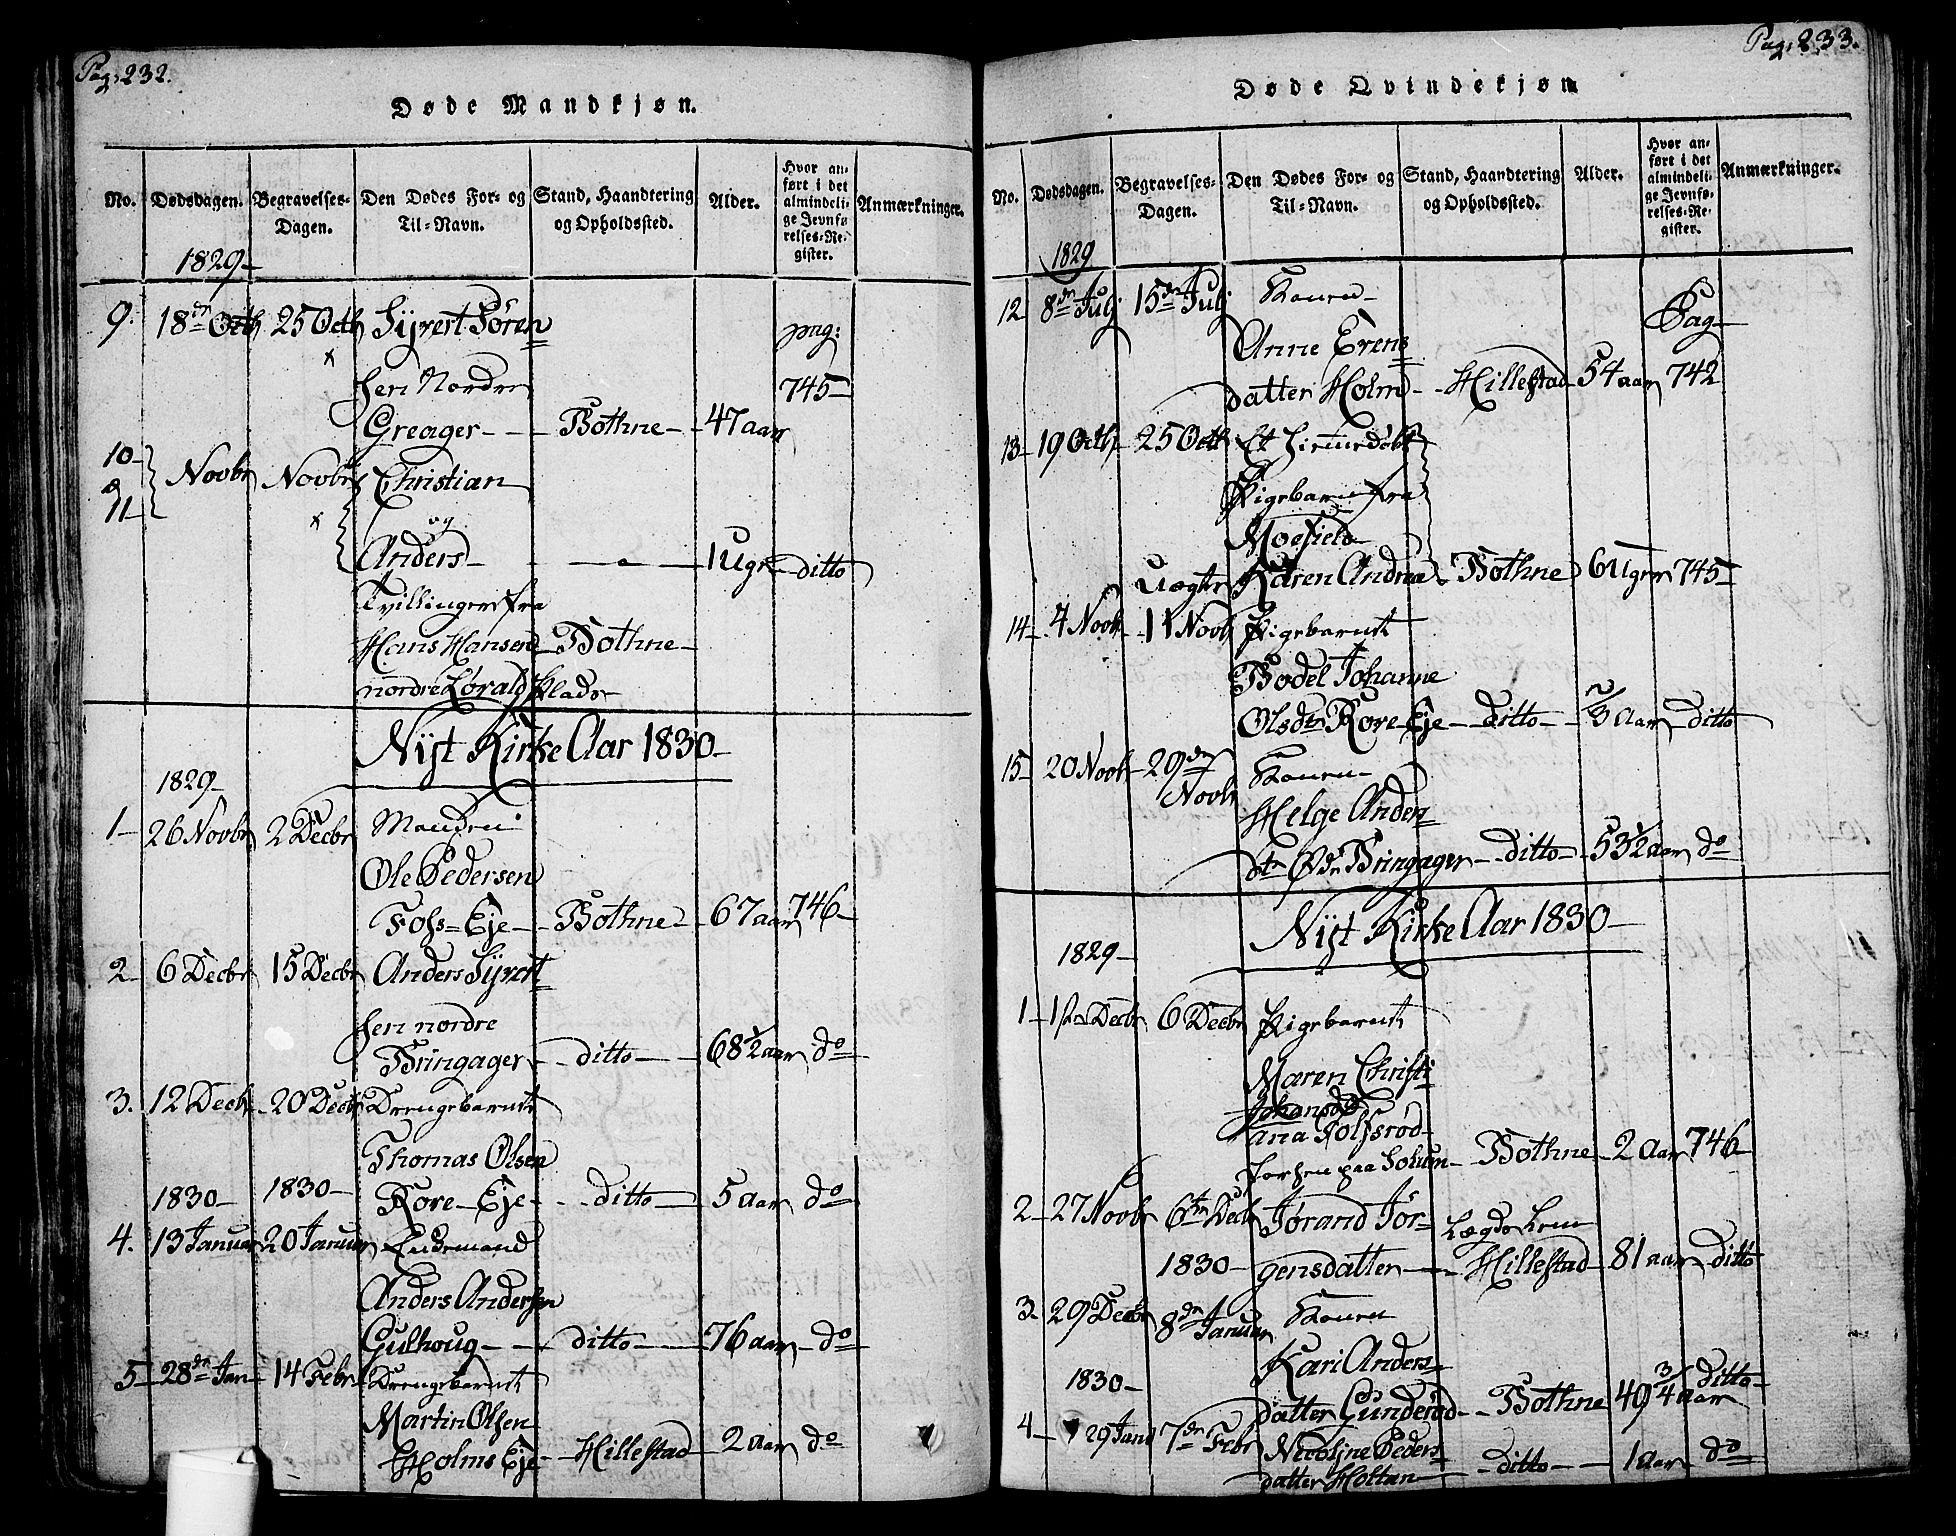 Pag: 232.
Døde Mandkjøn.
No. Dødsdagen. Begravelses-Dagen. Den Dødes For- og Til-Navn. Stand, Haandtering og Opholdssted. Alder. Hvor anført i det almindelige Jevnførelses-Register. Anmærkninger.
1829
9. 18de Octb 25 Octb Syvert Sören
pag:
sen Nordre 745
Greager Bothne 47 aar
10
& Novbr Novbr Christian
11
og
Anders 1 Ugr ditto
Tvillinger fra
Hans Hansen Bothne
nordre Lørald Plads
Nyt Kirke Aar 1830
1829
1 26 Novbr 2 Decbr Manden
Ole Pedersen
Foss-Eje Bothne 67 aar 746
2 6 Decbr 15 Decbr Anders Syvert
sen nordre
Bringager ditto 68½ aar do
3. 12 Decb 20 Decb Drengebarnet
Thomas Olsen
1830 1830 Rore-Eje ditto 5 aar do
4. 13 Januar 20 Januar Enkemand
Anders Andersen
Gulhoug ditto 76 aar do
5 28de Jan 14 Febr Drengebarnet
Martin Olsen
Holms Eje Hillestad 2 aar do
Pag: 233.
Døde Qvindekjøn
No. Dødsdagen. Begravelses-Dagen. Den Dødes For- og Til-Navn. Stand, Haandtering og Opholdssted. Alder. Hvor anført i det almindelige Jevnførelses-Register. Anmærkninger.
1829
12 8de Julj 15de Julj Konen Pag
Anne Erens
datter Holm Hillestad 54 aar 742
13 19 Octb 25 Octb Et hjemmedøbt
Pigebarn fra
Moefield
Uægte Karen Andrea Bothne 6 Uger 745
14 4 Novb 11 Novb Pigebarnet
Bodel Johanne
Olsdtr Rore-Eje ditto 2/3 Aar ditto
15 20 Novb 29de Novb Konen
Helge Anders
dtr Bringager ditto 53½ aar do
Nyt Kirke Aar 1830
1829
1 1ste Decbr 6 Decbr Pigebarnet
Maren Christi
Johansd
ana Solfsrød
paa Solum Bothne 2 Aar 746
2 27 Novbr 6te Decb Jørand Jør- Lægds Lem
1830 gensdatter Hillestad 81 aar ditto
3. 29 Decbr 8de Januar Konen
Kari Anders
1830 datter Gunderød Bothne 49 3/4 aar ditto
4 29 Janu 7de Febr Nicoline Peders
datter Holtan ditto 1 aar do